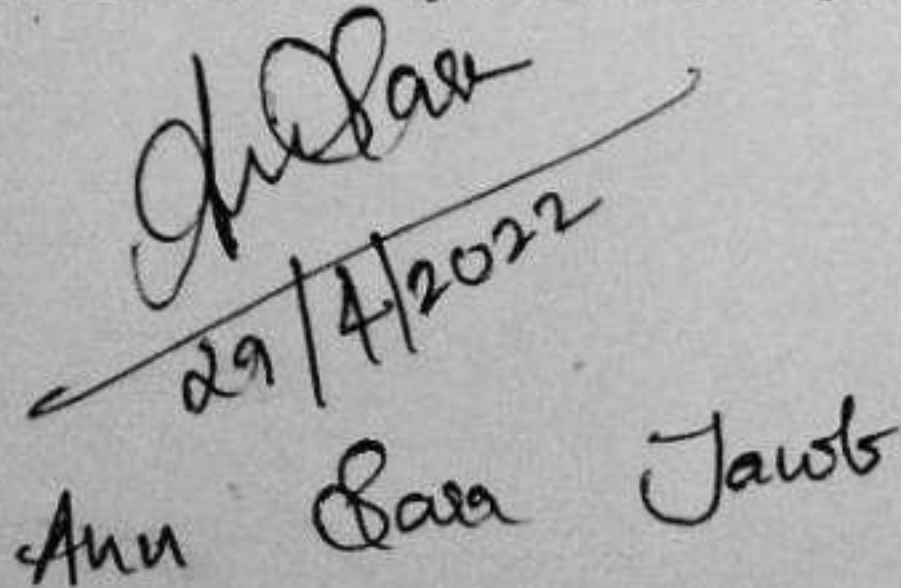 Ann Sara
29/4/2022
Ann Sara Jacob